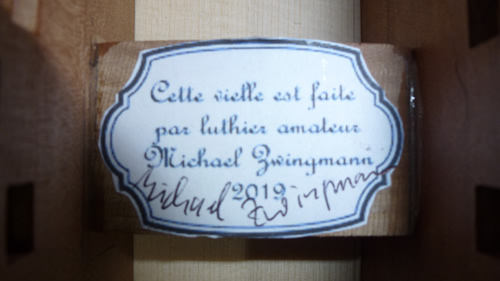 Cette vielle est faite
par luthier amateur
Michael Zwingmann
2019
Michael Zwingmann